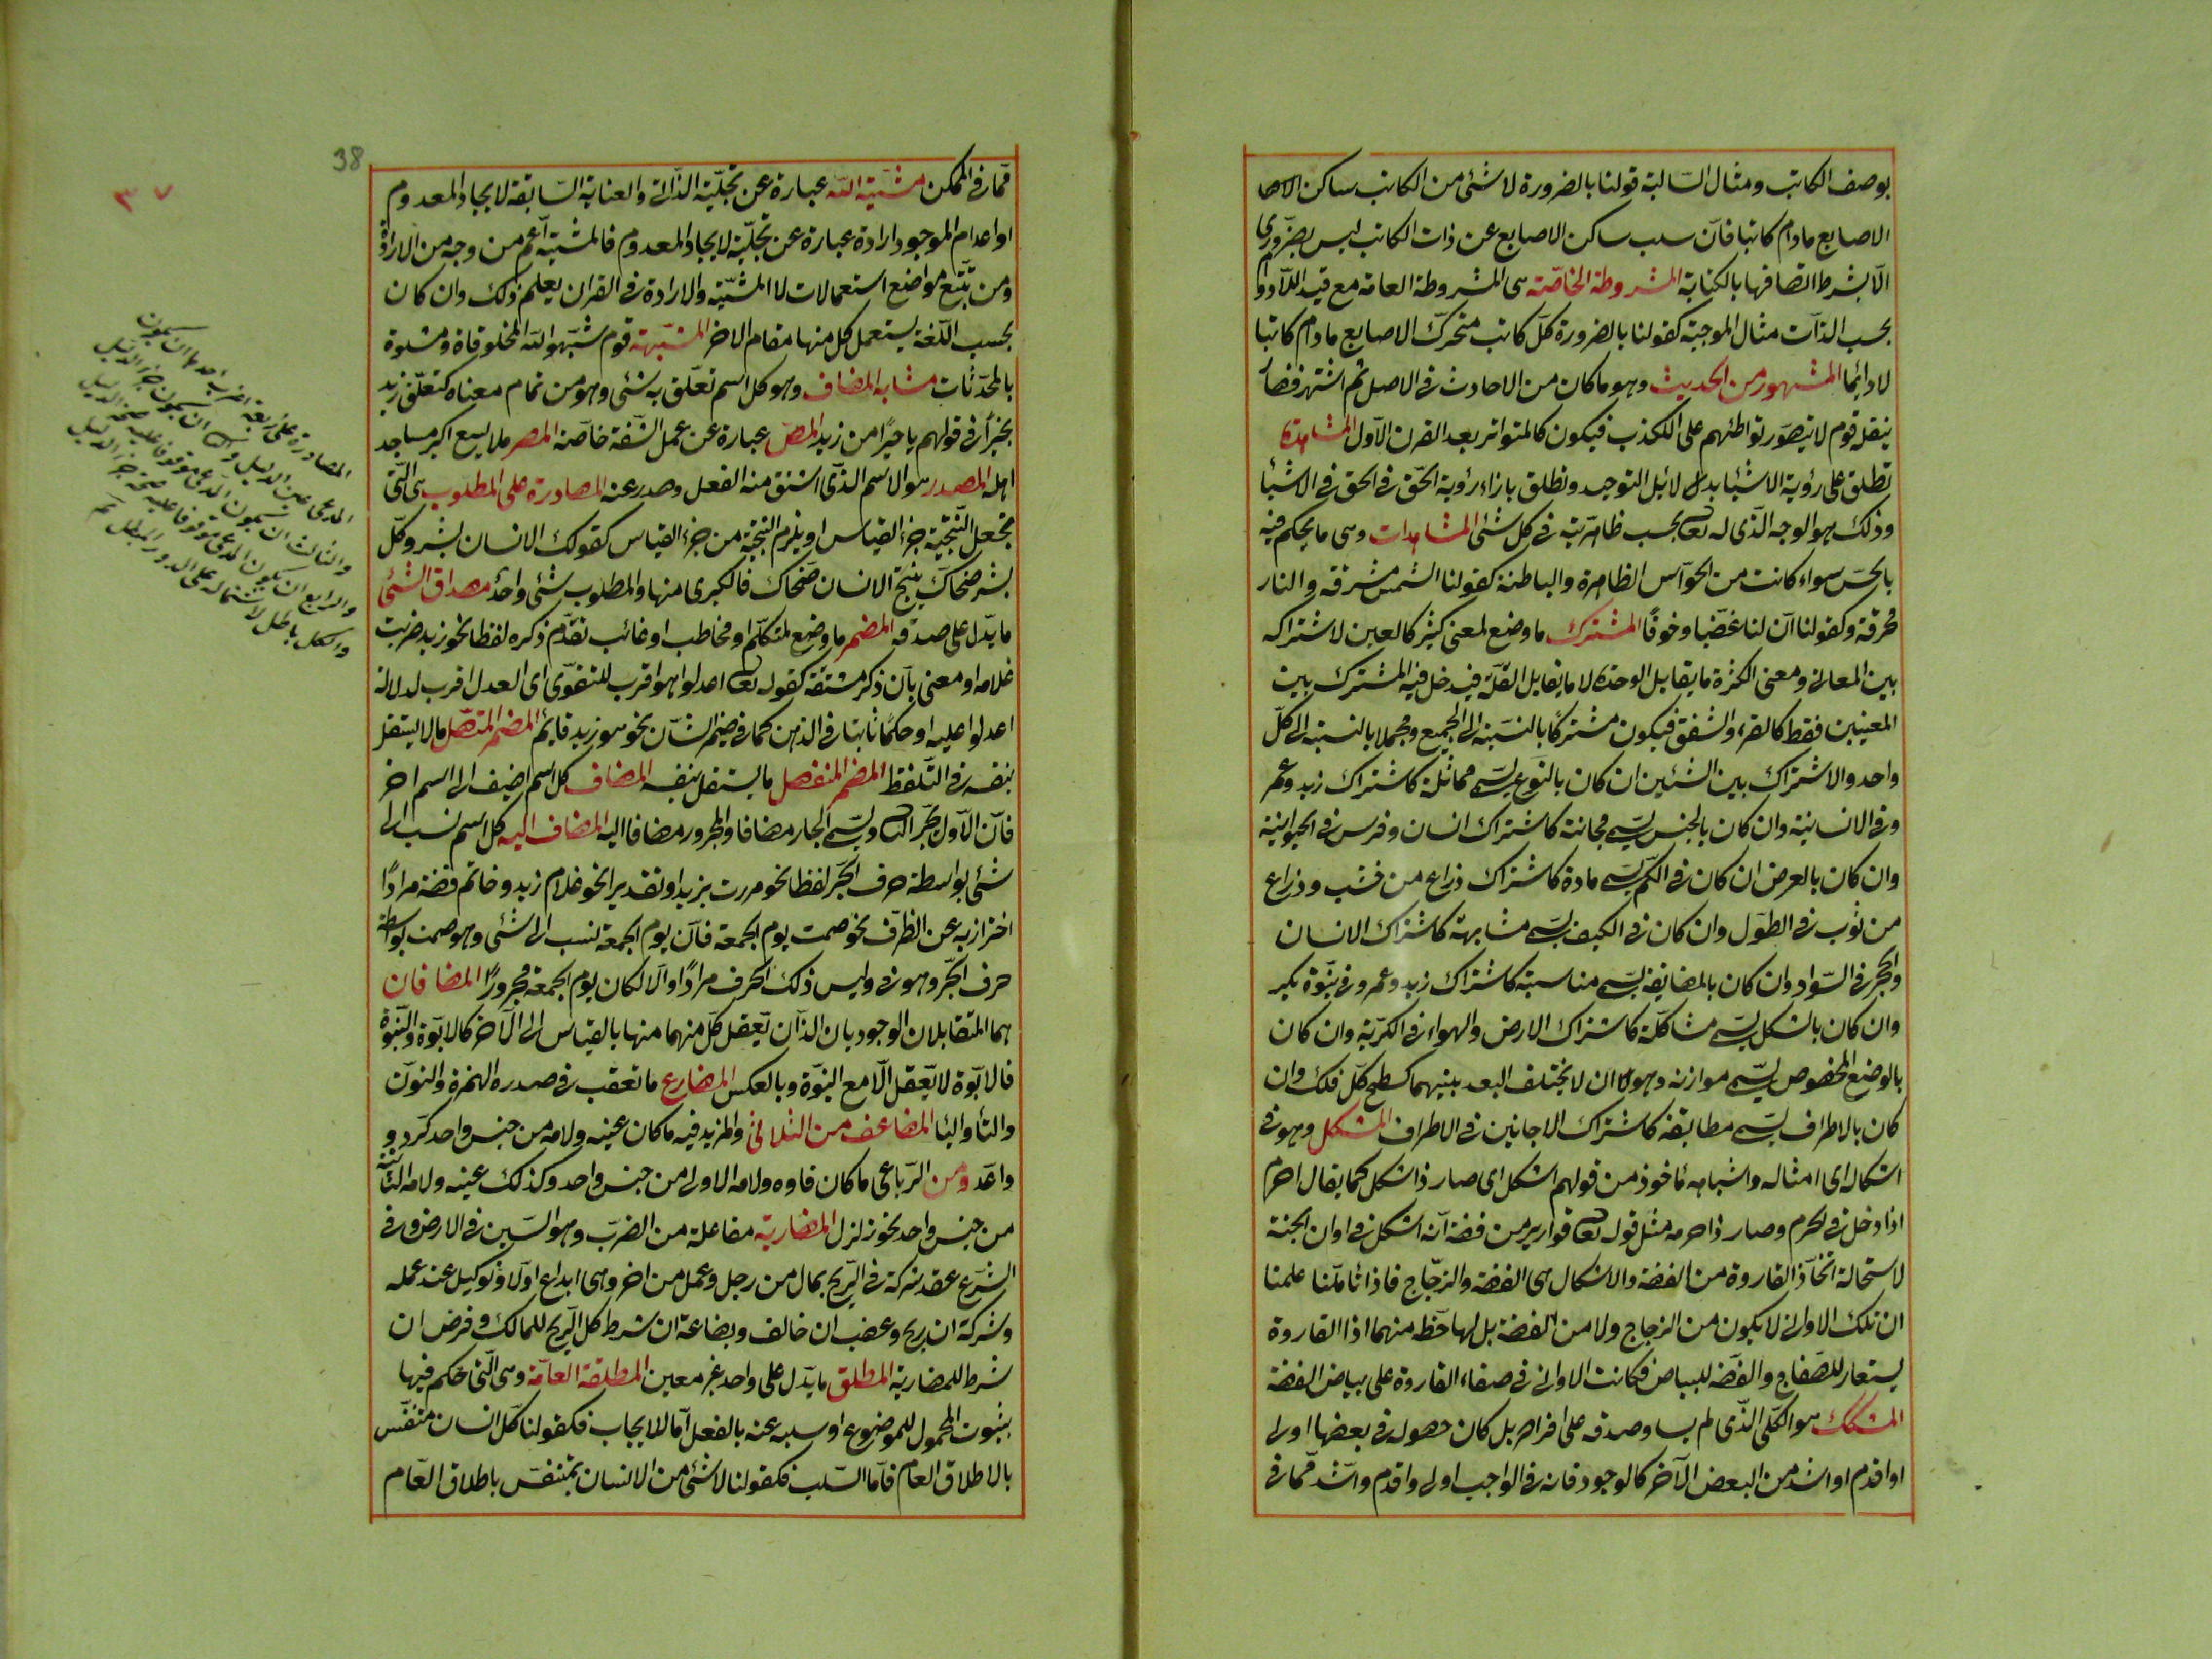 بوصف الكاتب ومثال السالبة قولنا بالضرورة لا شئ من الكاتب ساكن الاصا
الاصابع مادام كاتبا فان سلب ساكن الاصابع عن ذات الكاتب ليس بضروري
الا بشرط اتصافها بالكتابة المشروطة الخاصة هى المشروطة العامة مع قيد اللادوا
بحسب الذات مثال الموجبة كقولنا بالضرورة كل كاتب متحرك الاصابع مادام كاتبا
لا دائما المشهور من الحديث وهو ما كان من الاحادث فى الاصل ثم اشتهر فصا
ينقله قوم لا يتصور تواطئهم على الكذب فيكون كالمتواتر بعد القرن الاول المشاهدة
تطلق على رؤية الاشيا بدلائل التوحيد وتطلق بازاء رؤية الحق فى الحق فى الاشيأ
وذلك هو الوجه الذى له تعا بحسب ظاهريته فى كل شئ المشاهدات وهى ما يحكم فيه
بالحس سواء كانت من الحواس الظاهرة والباطنة كقولنا الشمس مشرقة والنار
محرقة وكقولنا ان لنا غضبا وخوفا المشترك ما وضع لمعنى كثير كالعين لاشتراكه
بين المعانى ومعنى الكثرة ما يقابل الوحدة لا ما يقابل القلة فيدخل فيه المشترك بين
المعنيين فقط كالقرء والشفق فيكون مشتركا بالنسبة الى الجميع ومجملا بالنسبة الى كل
واحد والاشتراك بين الشئين ان كان بالنوع يسمى مماثلة كاشتراك زيد وعمر
وفى الانسانية وان كان بالجنس يسمى مجانسة كاشتراك انسان وفرس فى الحيوانية
وان كان بالعرض ان كان فى الكم يسمى مادة كاشتراك ذراع من خشب وذراع
من ثوب فى الطول وان كان فى الكيف يسمى مشابهة كاشتراك الانسان
والحجر فى السواد وان كان بالمضايفة يسمى مناسبة كاشتراك زيد وعمرو فى بنوة بكر
وان كان بالشكل يسمى مشاكلة كاشتراك الارض والهواء فى الكرية وان كان
بالوضع المخصوص يسمى موازنة وهو ان لا يختلف البعد بينهما كسطح كل فلك وان
كان بالاطراف يسمى مطابقة كاشتراك الاجانين فى الاطراف المشكل وهو فى
اشكاله اى امثاله واشباهه مأخوذ من قولهم اشكل اى صار ذا شكل كما يقال احرم
اذا دخل فى الحرم وصار ذا حرمه مثل قوله تعا قوارير من فضة انه اشكل فى اوان الجنة
لاستحالة اتخاذ القاروة من الفضة والاشكال هى الفضة والزجاج فاذا تأملنا علمنا
ان تلك الاوانى لا يكون من الزجاج ولا من الفضة بل لها حظ منهما اذا القاروة
يستعار للصفاج والفضة للبياض فكانت الاوانى فى صفاء القاروة على بياض الفضة
المشكك هو الكلى الذى لم يساو صدقه على افراده بل كان حصوله فى بعضها اولى
او اقدم او اشد من البعض الآخر كالوجود فانه فى الواجب اولى واقدم واشد مما فى
38
٣٧
مما فى الممكن مشيئة الله عبارة عن تجلية الذاتى والعناية السابقة لايجاد المعدوم
او اعدام الموجود ارادة عبارة عن تجلية لايجاد المعدوم فالمشيئة اعم من وجه من الارادة
ومن تتبع مواضع استعمالات لا المشيئة والارادة فى القران يعلم ذلك وان كان
بحسب اللغة يستعمل كل منها مقام الاخر المشبهة قوم شبهوا الله المخلوقاة ومثلوة
بالمحدثات مشابه المضاف وهو كل اسم تعلق به شئ وهو من تمام معناه كتعلق زيد
بخيرأ فى قولهم يا خيرا من زيد المص عبارة عن عمل الشفة خاصة المصر ملا يسع اكبر مساجد
اهله المصدر هو الاسم الذى اشتق منه الفعل وصدر عنه المصادرة على المطلوب هى التى
تجعل النتيجة جزء القياس او يلزم النتيجة من جزء القياس كقولك الانسان بشر وكل
بشر ضحاك ينتج الانسان ضحاك فالكبرى منها والمطلوب شئ واحد مصداق الشئ
ما يدل على صدقه المضمر ما وضع لمتكلم او مخاطب او غائب تقدم ذكره لفظا نحو زيد ضربت
غلامه او معنى بان ذكر مشتقه كقوله تعا اعدلوا هو اقرب للتقوى اى العدل اقرب لدلالة
اعدلوا عليه او حكما ثابتا فى الذهن كما فى ضمير الشان نحو هو زيد قايم المضمر المتصل ما لا يستقل
بنفسه فى التلفظ المضمر المنفصل ما يستقل بنفسه المضاف كل اسم اضيف الى اسم اخر
فان الاول يجر الثا ويسمى الجار مضافا والمجرور مضافا اليه المضاف اليه كل اسم نسب الى
شئ بواسطة حرف الجر لفظا نحو مررت بزيد او تقديرا نحو غلام زيد وخاتم فضة مرادا
احترازبه عن الظرف نحو صمت يوم الجمعة فان يوم الجمعة نسب الى شئ وهو صمت بواسطة
حرف الجر وهو فى وليس ذلك الحرف مرادا والا لكان يوم الجمعة مجرورا المضافان
هما المتقابلان الوجوديان الذان تعقل كل منهما منها بالقياس الى الآخر كالابوة والبنوة
فالابوة لا تعقل الا مع البنوة وبالعكس المضارع ما تعقب فى صدره الهمزة والنون
والتأ واليا المضاعف من الثلاثى والمزيد فيه ما كان عينه ولامه من جنس واحد كرد و
واعد ومن الرباعى ما كان فاوه ولامه الاولى من جنس واحد وكذلك عينه ولامه الثانية
من جنس واحد نحو زلزل المضاربة مفاعلة من الضرب وهو السير فى الارض وفى
الشرع عقد شركة فى الربح بمال من رجل وعمل من اخر وهى ايداع اولا وتوكيل عند عمله
وشركة ان ربح وغصب ان خالف وبضاعة ان شرط كل الربح للمالك وقرض ان
شرط للمضاربة المطلق ما يدل على واحد غير معين المطلقة العامة وهى التى حكم فيها
بثبوت المحمول للموضوع او سلبه عنه بالفعل اما الايجاب فكقولنا كل انسان متنفس
بالاطلاق العام فاما السلب فكقولنا لا شئ من الانسان بمتنفس باطلاق العام
المصادرة على اربعة اضرب احدها ان يكون
المدعى عين الدليل و ان يكون جزء الدليل
والثالث ان يكون المدعى موقوفا عليه صحة الدليل
والرابع ان يكون المدعى موقوفا عليه صحة جزء الدليل
والكل باطل لاشتماله على الدور الباطل تم